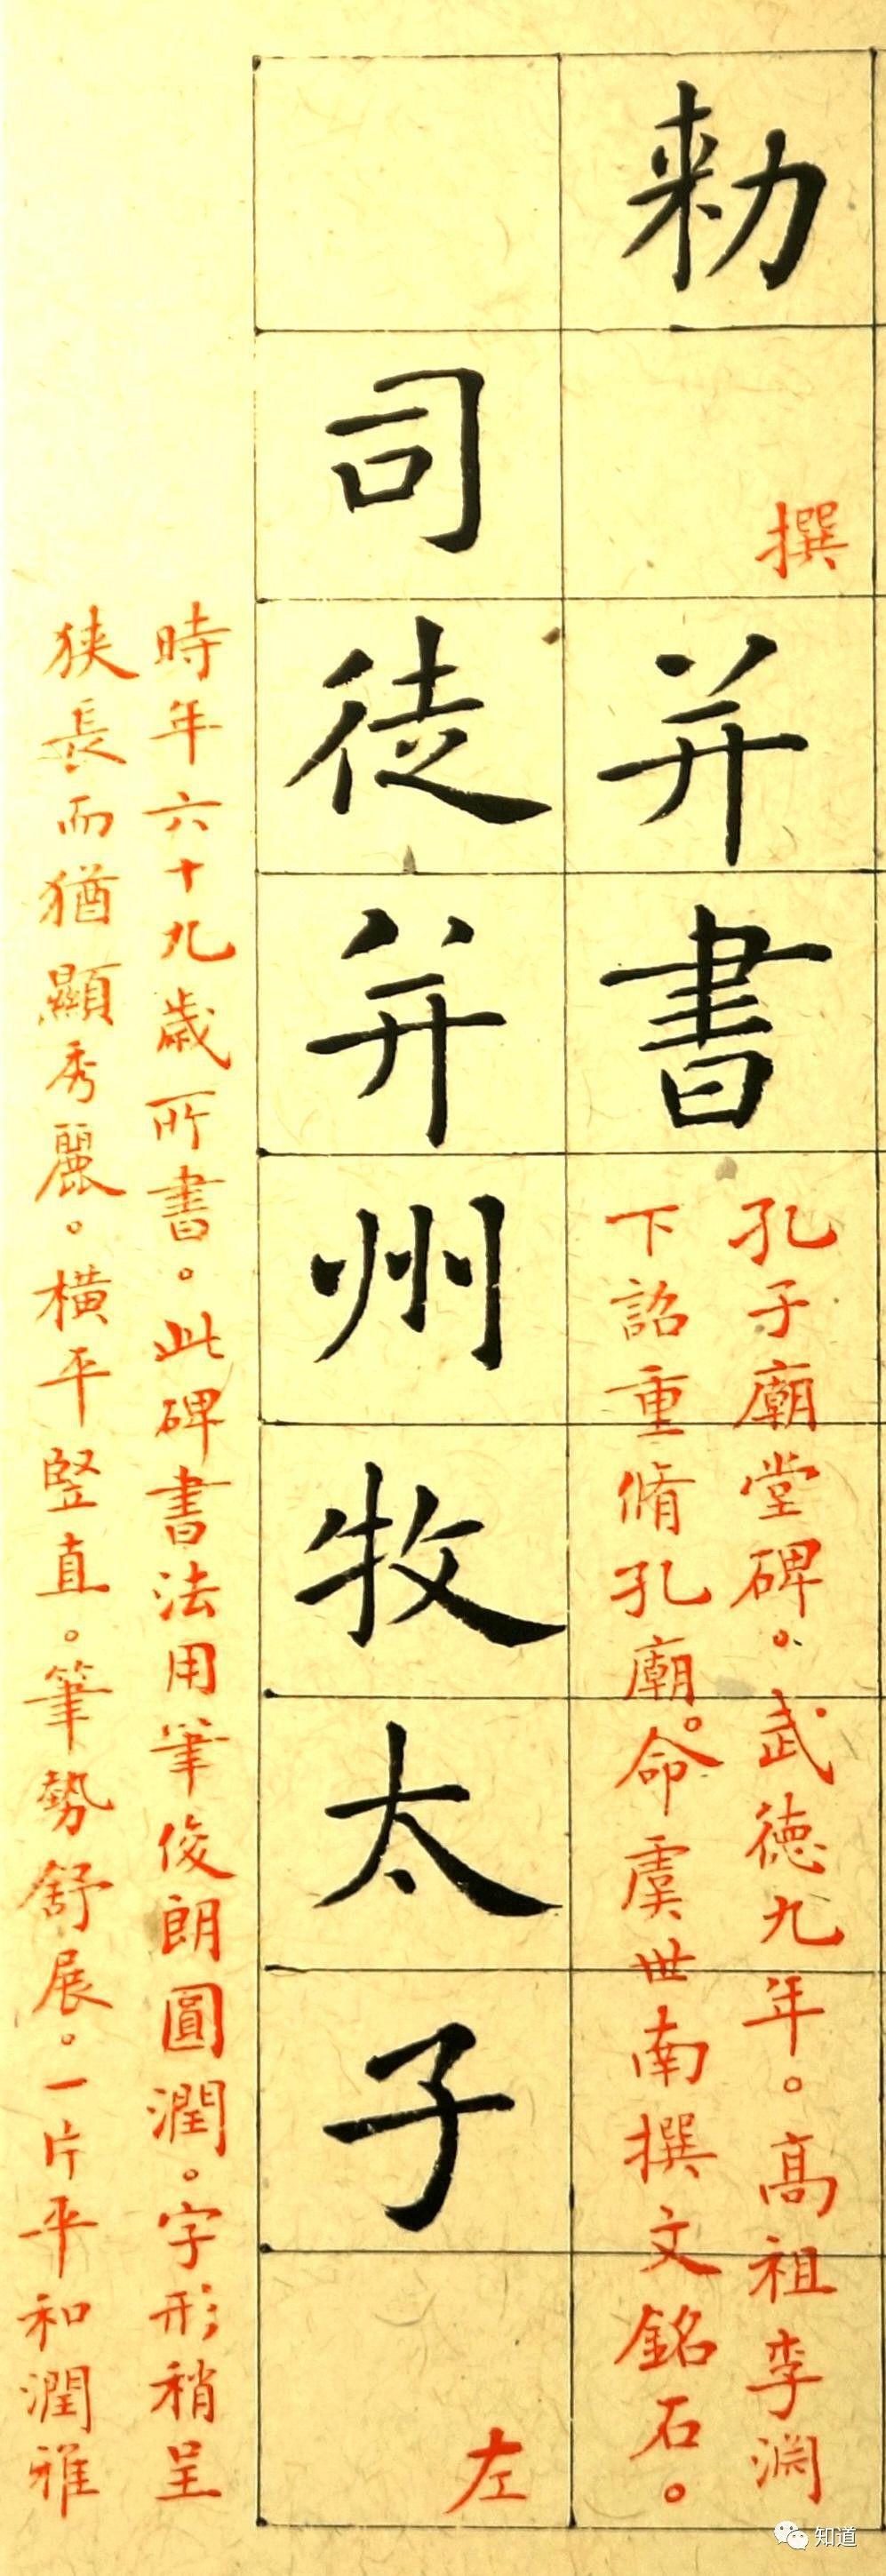 勑撰并書
孔子廟堂碑。武德九年。高祖李渊
下詔重脩孔廟。命虞世南撰文銘石。
司徒并州牧太子左
時年六十九歲所書。此碑書法用筆俊朗圓潤。字形稍呈
狹長而猶顯秀麗。橫平竪直。筆勢舒展。一片平和潤雅
知道